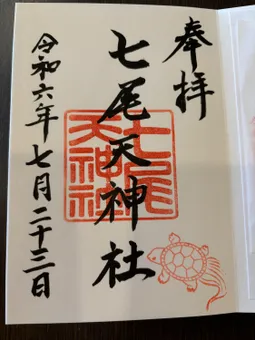 奉拝
七尾天神社
七尾天神社
令和六年七月二十三日